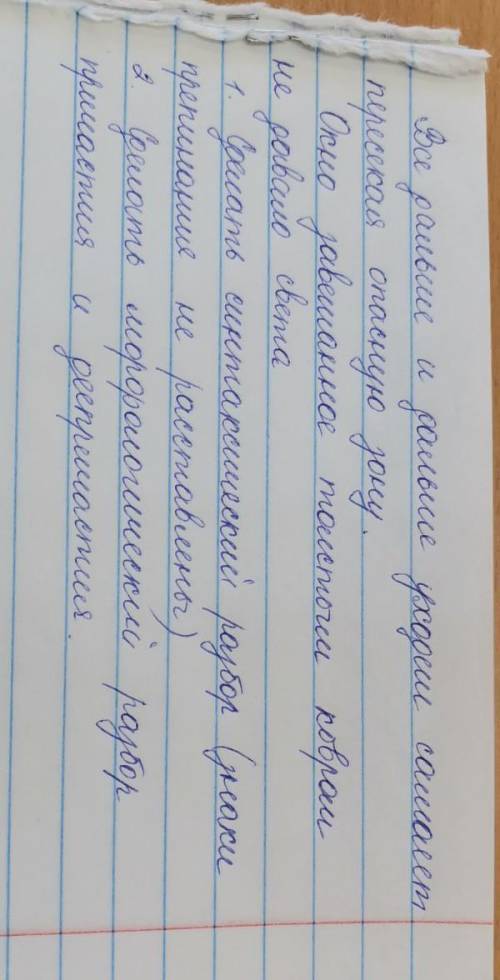 Все дальше и дальше уходит самолет
пересекая опасную зону.
Окно завешанное толстым ковром
не давало света
1. Сделать синтаксический разбор (знаки
препинания не расставлены)
2. Сделать морфологический разбор
причастия и деепричастия.